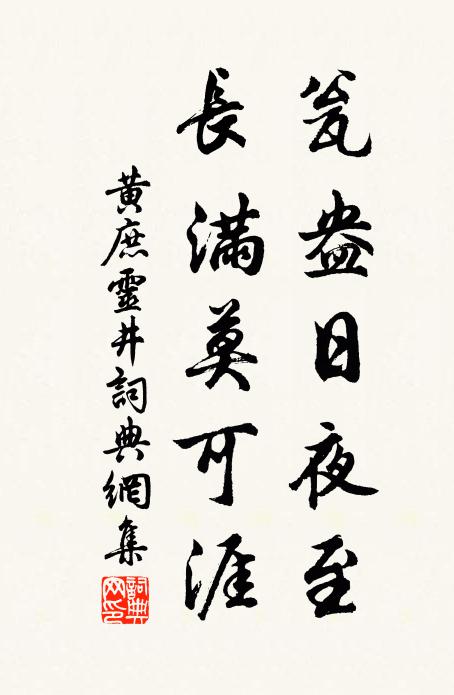 瓮盎日夜至
長滿莫可涯
黄庶靈井詞典網集
詞典網印